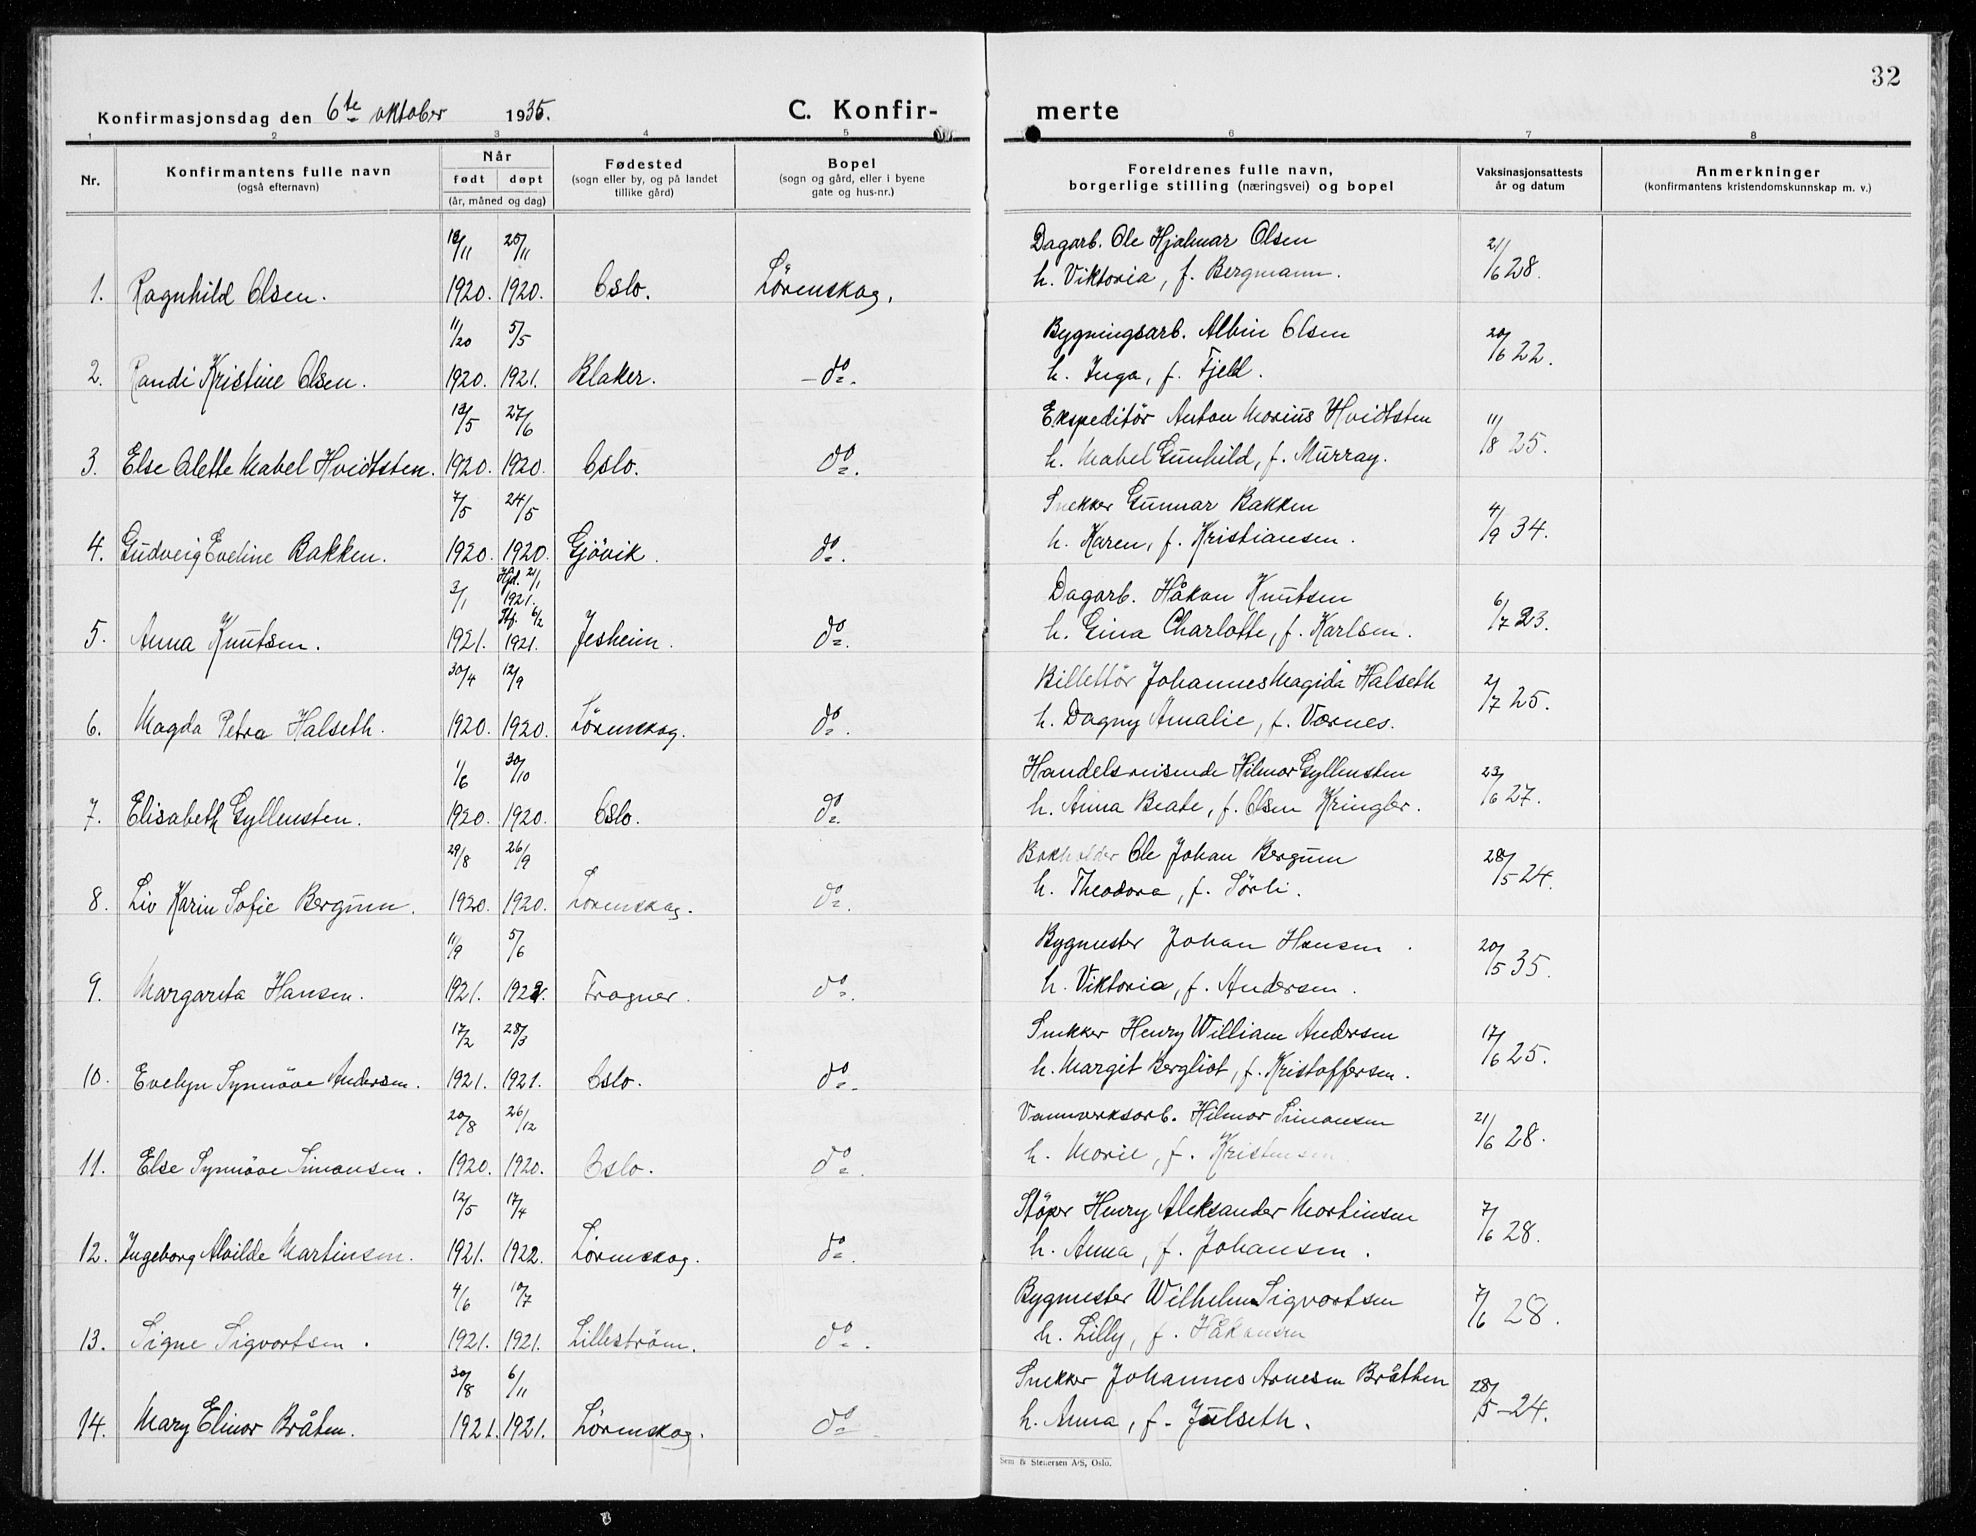 32
Konfirmasjonsdag den 6te oktober 1935.
C. Konfir-
merte
1 2 3 4 5 6 7 8
Nr.
Konfirmantens fulle navn
(også efternavn)
Når
født døpt
(år, måned og dag)
Fødested
(sogn eller by, og på landet
tillike gård)
Bopel
(sogn og gård, eller i byene
gate og hus-nr.)
Foreldrenes fulle navn,
borgerlige stilling (næringsvei) og bopel
Vaksinasjonsattests
år og datum
Anmerkninger
(konfirmantens kristendomskunnskap m. v.)
25/11 Dagarb. Ole Hjalmar Olsen 21/6 28.
1. Ragnhild Olsen. 1920. 1920. Oslo. Lörenskog. h. Viktoria, f. Bergmann.
11/20 5/5 Bygningsarb. Albin Olsen 20/6 22.
2. Randi Kristine Olsen. 1920. 1921. Blaker. — do. h. Inga, f. Fjeld.
27/6 Ekspeditör Anton Marius Hvidtsten 11/8 25.
3. Else Alette Mabel Hvidtsten. 1920. 1920. Oslo. do. h. Mabel Gunhild, f. Murray.
7/5 24/5 Snekker Gunnar Bakken 4/9 34.
4. Gudveig Eveline Bakken. 1920. 1920. Gjövik. do. h. Karen, f. Kristiansen.
3/1 Hjd. 21/1 1921. Stf. 6/2 Dagarb. Håkon Knutsen 6/7 23.
5. Anna Knutsen. 1921. 1921. Jesheim. do. h. Gina Charlotte, f. Karlsen.
30/4 12/9 Billettör Johannes Magida Halseth 2/7 25.
6. Magda Petra Halseth. 1920. 1920. Lörenskog. do. h. Dagny Amalie, f. Værnes.
1/6 30/10 Handelsreisende Hilmar Gyllensten 23/6 27.
7. Elisabeth Gyllensten. 1920. 1920. Oslo. do. h. Anna Beate, f. Olsen Kringler.
29/8 26/9 Bokholder Ole Johan Bergum 28/5-24.
8. Liv Karin Sofie Bergum. 1920. 1920. Lörenskog. do. h. Theodora, f. Sörli.
11/9 5/6 Bygmester Johan Hansen. 20/5 35.
9. Margareta Hansen. 1921. 1922. Frogner. do. h. Viktoria, f. Andersen.
17/2 28/3 Snekker Henry William Andersen 17/6 25.
10. Evelyn Synnöve Andersen. 1921. 1921. Oslo. do. h. Margit Bergliot, f. Kristoffersen.
20/8 26/12 Vannverksarb. Hilmar Simonsen 21/6 28.
11. Else Synnöve Simonsen. 1920. 1920. Oslo. do. h. Marie, f. Kristensen
12/5 17/4 Stöper Henry Aleksander Martinsen 7/6 28.
12. Ingeborg Alvilde Martinsen. 1921. 1922. Lörenskog. do. h. Anna, f. Johansen.
4/6 10/7 Bygmester Wilhelm Sigvartsen 7/6 28.
13. Signe Sigvartsen. 1921. 1921. Lilleström. do. h. Lilly, f. Håkonsen
30/8 6/11 Snekker Johannes Arnesen Bråtten 28/5-24.
14. Mary Elinor Bråten. 1921. 1921. Lörenskog. do. h. Anna, f. Julseth.
Sem & Stenersen A/S, Oslo.